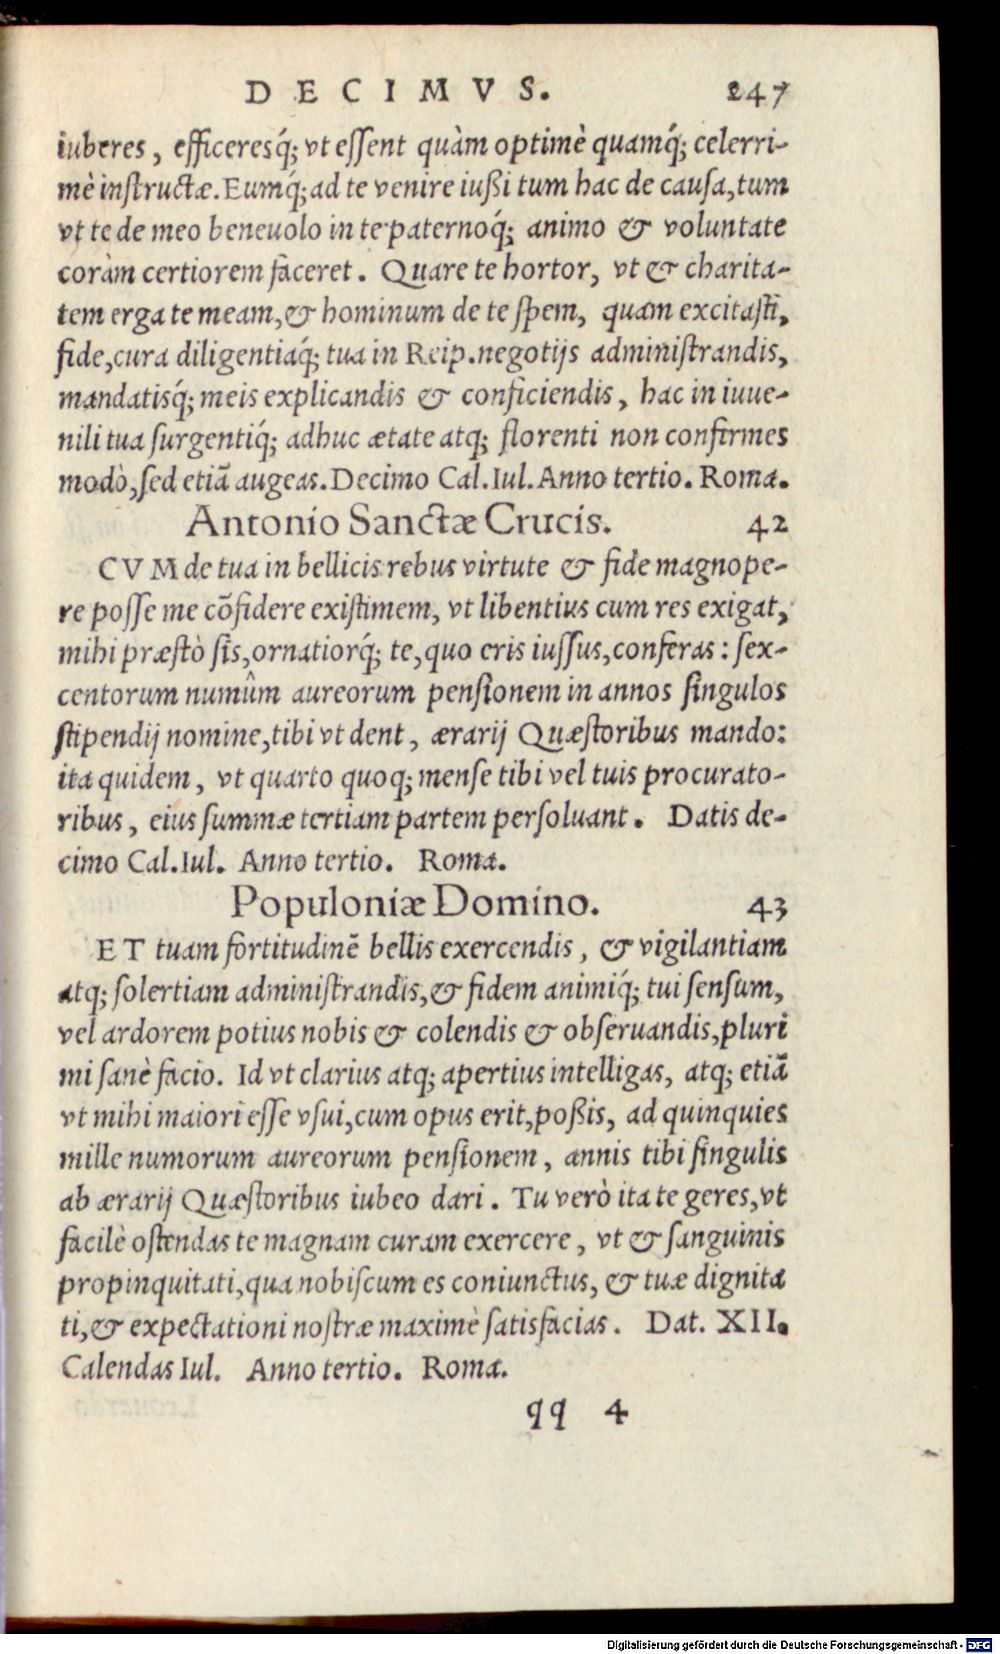 DECIMVS. 247
iuberes, efficeresq́; vt essent quàm optimè quamq́; celerri-
mè instructæ. Eumq́; ad te venire iußi tum hac de causa, tum
vt te de meo beneuolo in te paternoq́; animo & voluntate
coràm certiorem faceret. Quare te hortor, vt & charita-
tem erga te meam, & hominum de te spem, quam excitasti,
fide, cura diligentiaq́; tua in Reip. negotijs administrandis,
mandatisq́; meis explicandis & conficiendis, hac in iuue-
nili tua surgentiq́; adhuc ætate atq; florenti non confirmes
modò, sed etiã augeas. Decimo Cal. Iul. Anno tertio. Roma.
Antonio Sanctæ Crucis. 42
CVM de tua in bellicis rebus virtute & fide magnope-
re posse me cõfidere existimem, vt libentius cum res exigat,
mihi præstò sis, ornatiorq́; te, quo eris iussus, conferas: sex-
centorum numûm aureorum pensionem in annos singulos
stipendij nomine, tibi vt dent, ærarij Quæstoribus mando:
ita quidem, vt quarto quoq; mense tibi vel tuis procurato-
ribus, eius summæ tertiam partem persoluant. Datis de-
cimo Cal. Iul. Anno tertio. Roma.
Populoniæ Domino. 43
ET tuam fortitudinẽ bellis exercendis, & vigilantiam
atq; solertiam administrandis, & fidem animiq́; tui sensum,
vel ardorem potius nobis & colendis & obseruandis, pluri
mi sanè facio. Id vt clarius atq; apertius intelligas, atq; etiã
vt mihi maiori esse vsui, cum opus erit, poßis, ad quinquies
mille numorum aureorum pensionem, annis tibi singulis
ab ærarij Quæstoribus iubeo dari. Tu verò ita te geres, vt
facilè ostendas te magnam curam exercere, vt & sanguinis
propinquitati, qua nobiscum es coniunctus, & tuæ dignita
ti, & expectationi nostræ maximè satisfacias. Dat. XII.
Calendas Iul. Anno tertio. Roma.
qq 4
Digitalisierung gefördert durch die Deutsche Forschungsgemeinschaft - DFG